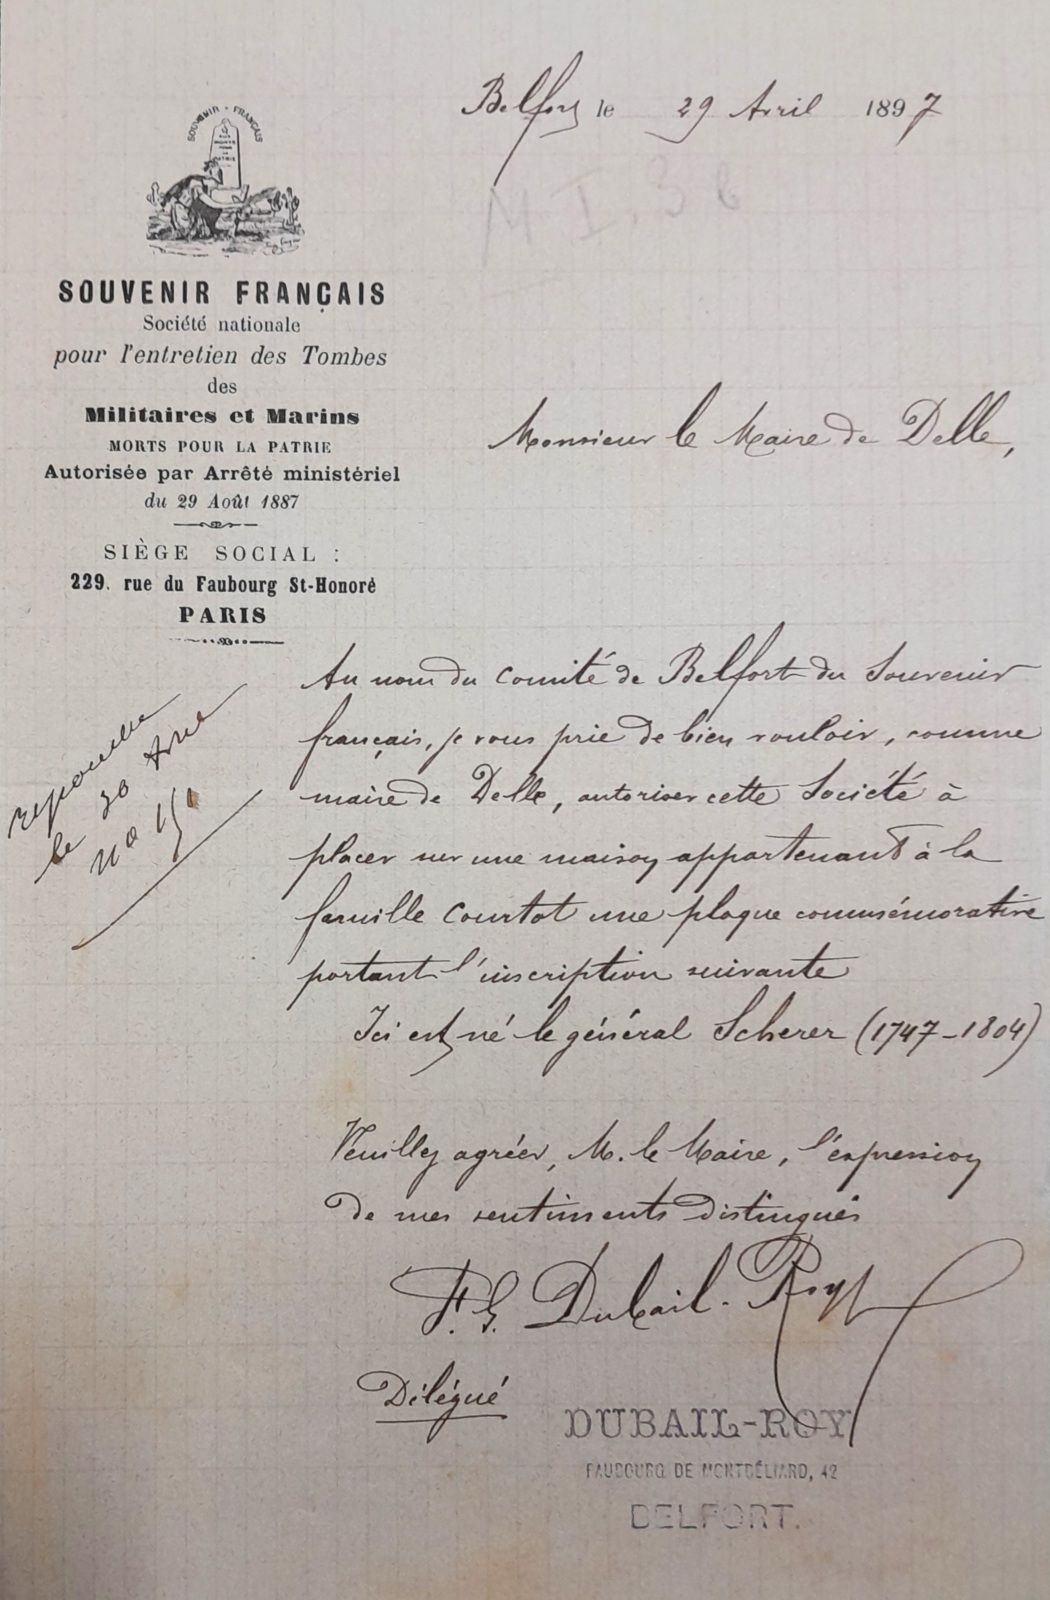 Belfort le 29 Avril 1897
M I. 3 6
SOUVENIR - FRANÇAIS
SOUVENIR FRANÇAIS
Société nationale
pour l'entretien des Tombes
des
Militaires et Marins
MORTS POUR LA PATRIE
Autorisée par Arrêté ministériel
du 29 Août 1887
SIÈGE SOCIAL :
229. rue du Faubourg St-Honoré
PARIS
Monsieur le Maire de Delle,
Au nom du Comité de Belfort du Souvenir
français, je vous prie de bien vouloir, comme
maire de Delle, autoriser cette Société à
placer sur une maison appartenant à la
famille Courtot une plaque commémorative
portant l'inscription suivante
Ici est né le général Scherer (1747-1804)
Veuillez agréer, M. le Maire, l'expression
de mes sentiments distingués
F. G. Dubail-Roy
Délégué
DUBAIL-ROY
FAUBOURG DE MONTBÉLIARD, 42
BELFORT.
le 30
no